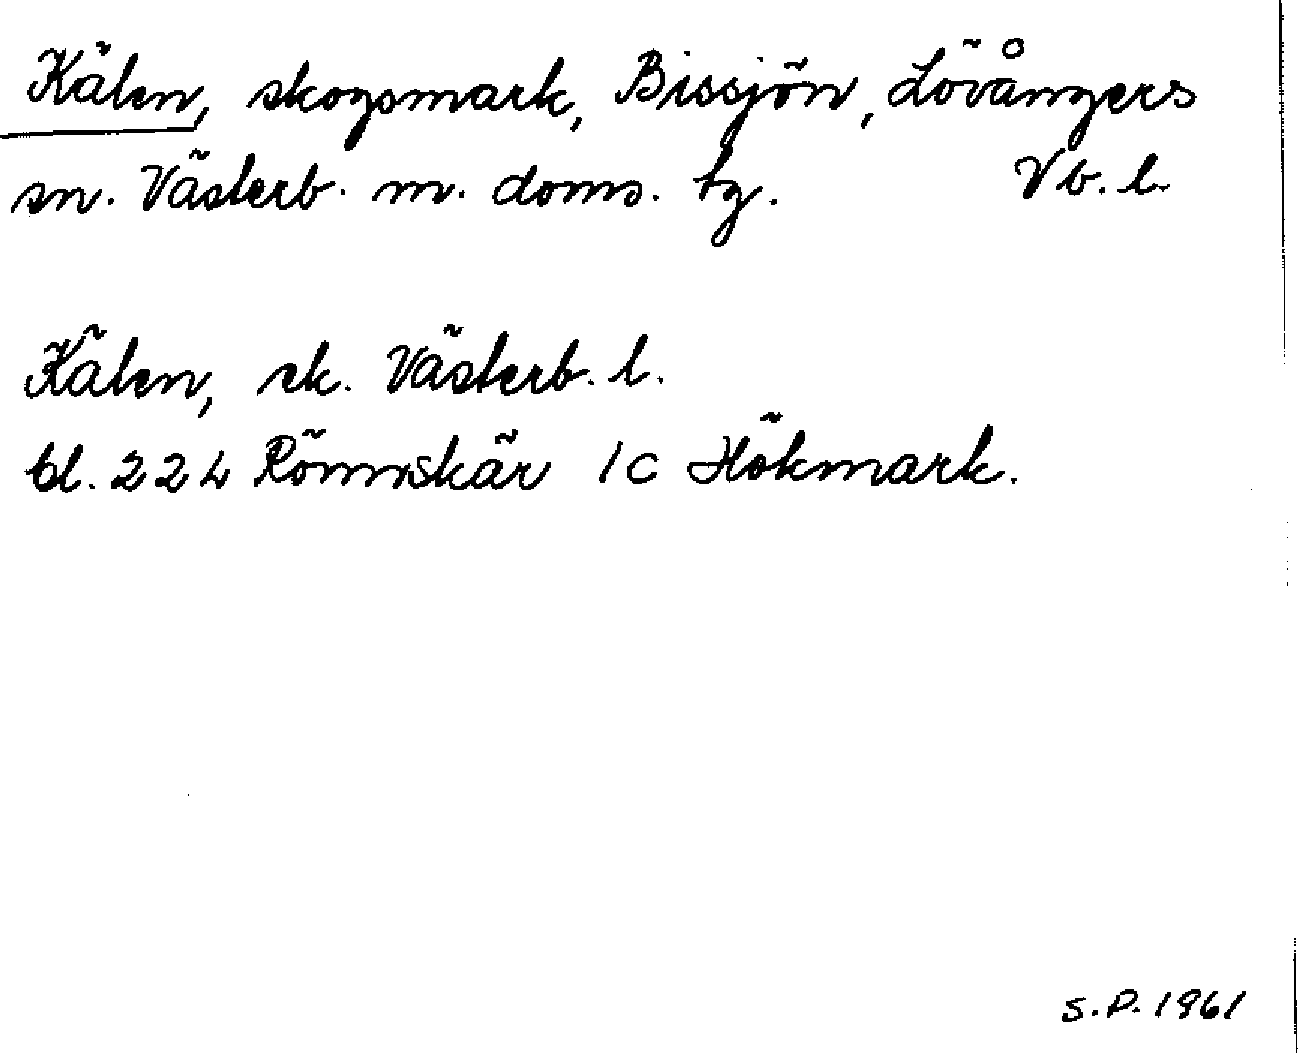 Kälen, skogsmark, Bissjön, Lövångers
sn. Västerb. m. doms. tg. Vb. l.
Kälen, sk. Västerb. l.
bl. 224 Rönnskär 1c Hökmark.
S.P. 1961